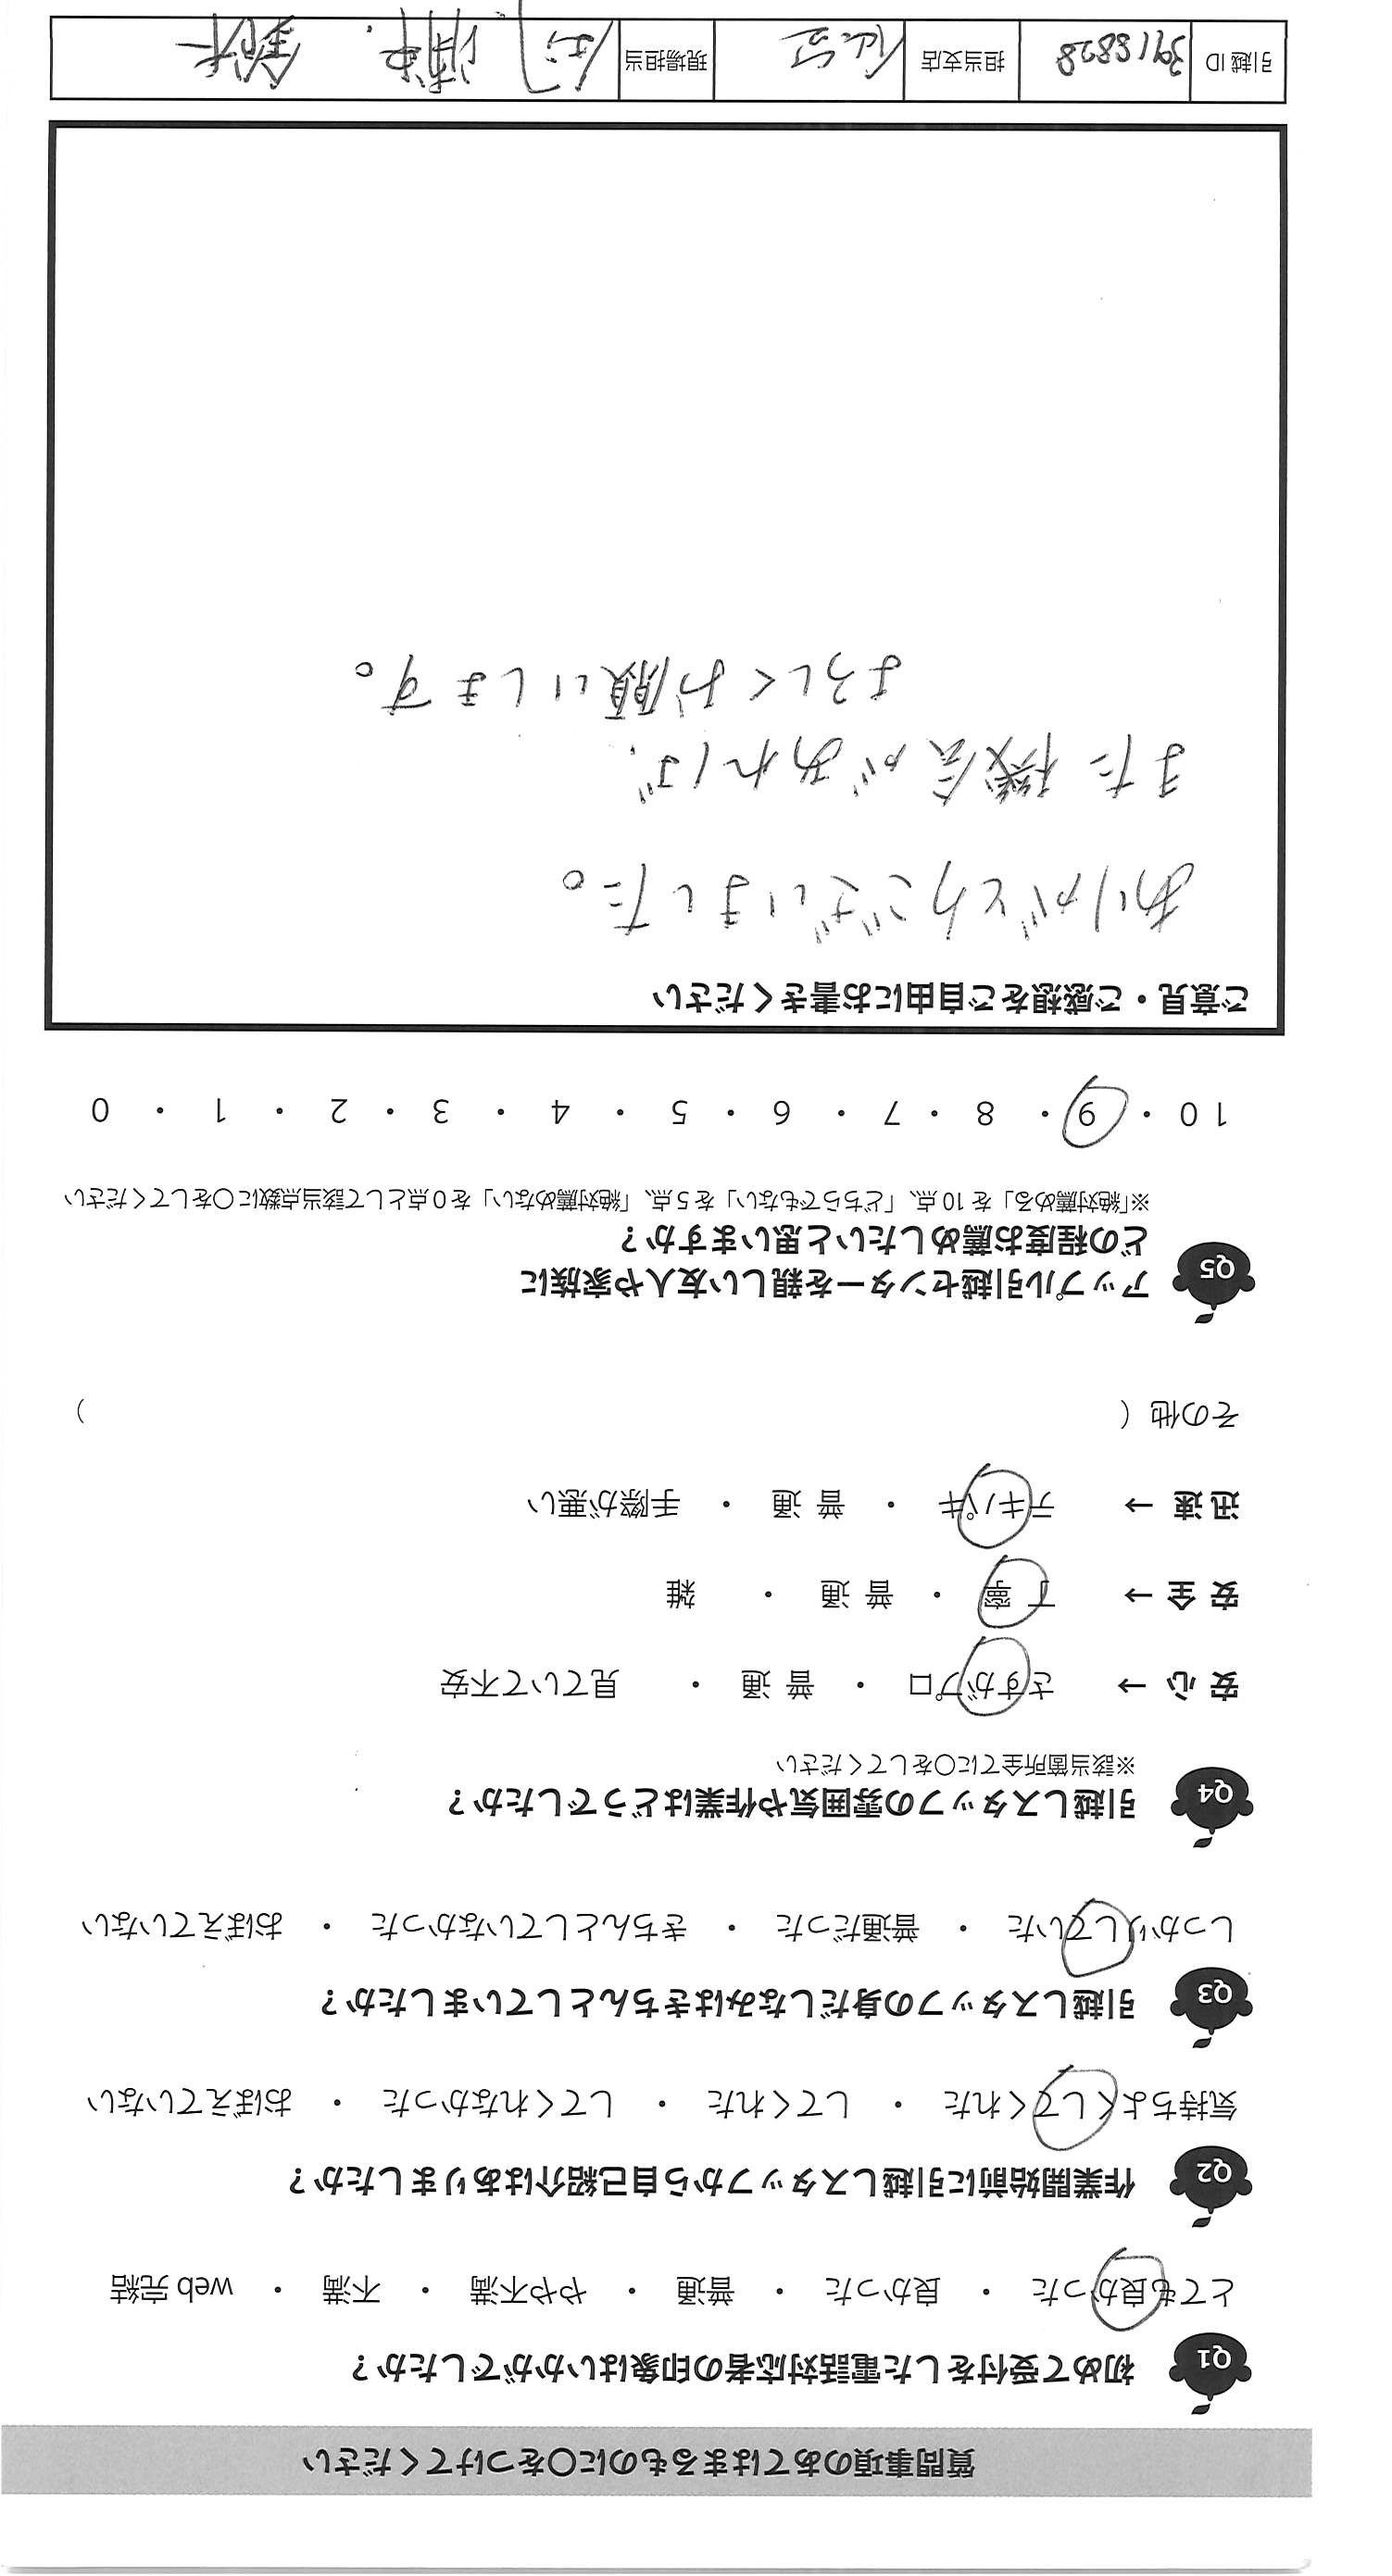 質問事項のあてはまるものに○をつけてください
Q1 初めて受付をした電話対応者の印象はいかがでしたか？
とても良かった ・ 良かった ・ 普通 ・ やや不満 ・ 不満 ・ web 完結
Q2 作業開始前に引越しスタッフから自己紹介はありましたか？
気持ちよくしてくれた ・ してくれた ・ してくれなかった ・ おぼえていない
Q3 引越しスタッフの身だしなみはきちんとしていましたか？
しっかりしていた ・ 普通だった ・ きちんとしていなかった ・ おぼえていない
Q4 引越しスタッフの雰囲気や作業はどうでしたか？
※該当箇所全てに○をしてください
安 心 → さすがプロ ・ 普 通 ・ 見ていて不安
安 全 → 丁 寧 ・ 普 通 ・ 雑
迅 速 → テキパキ ・ 普 通 ・ 手際が悪い
その他（ ）
Q5 アップル引越センターを親しい友人や家族に
どの程度お薦めしたいと思いますか？
※「絶対薦める」を 10 点、「どちらでもない」を 5 点、「絶対薦めない」を 0 点として該当点数に○をしてください
10 ・ 9 ・ 8 ・ 7 ・ 6 ・ 5 ・ 4 ・ 3 ・ 2 ・ 1 ・ 0
ご意見・ご感想をご自由にお書きください
ありがとうございました。
また機会があれば、
よろしくお願いします。
引越 ID 3918828 担当支店 仙台 現場担当